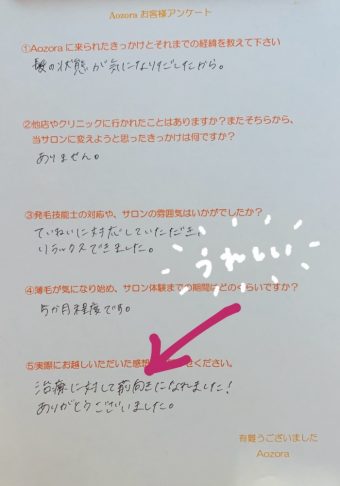 Aozora お客様アンケート
①Aozora に来られたきっかけとそれまでの経緯を教えて下さい
髪の状態が気になりだしたから。
②他店やクリニックに行かれたことはありますか？またそちらから、
当サロンに変えようと思ったきっかけは何ですか？
ありません。
③発毛技能士の対応や、サロンの雰囲気はいかがでしたか？
ていねいに対応していただき、
リラックスできました。
うれしい
④薄毛が気になり始め、サロン体験までの期間はどのくらいですか？
5か月程度です。
⑤実際にお越しいただいた感想 せください。
治療に対して前向きになれました！
ありがとうございました。
有難うございました
Aozora